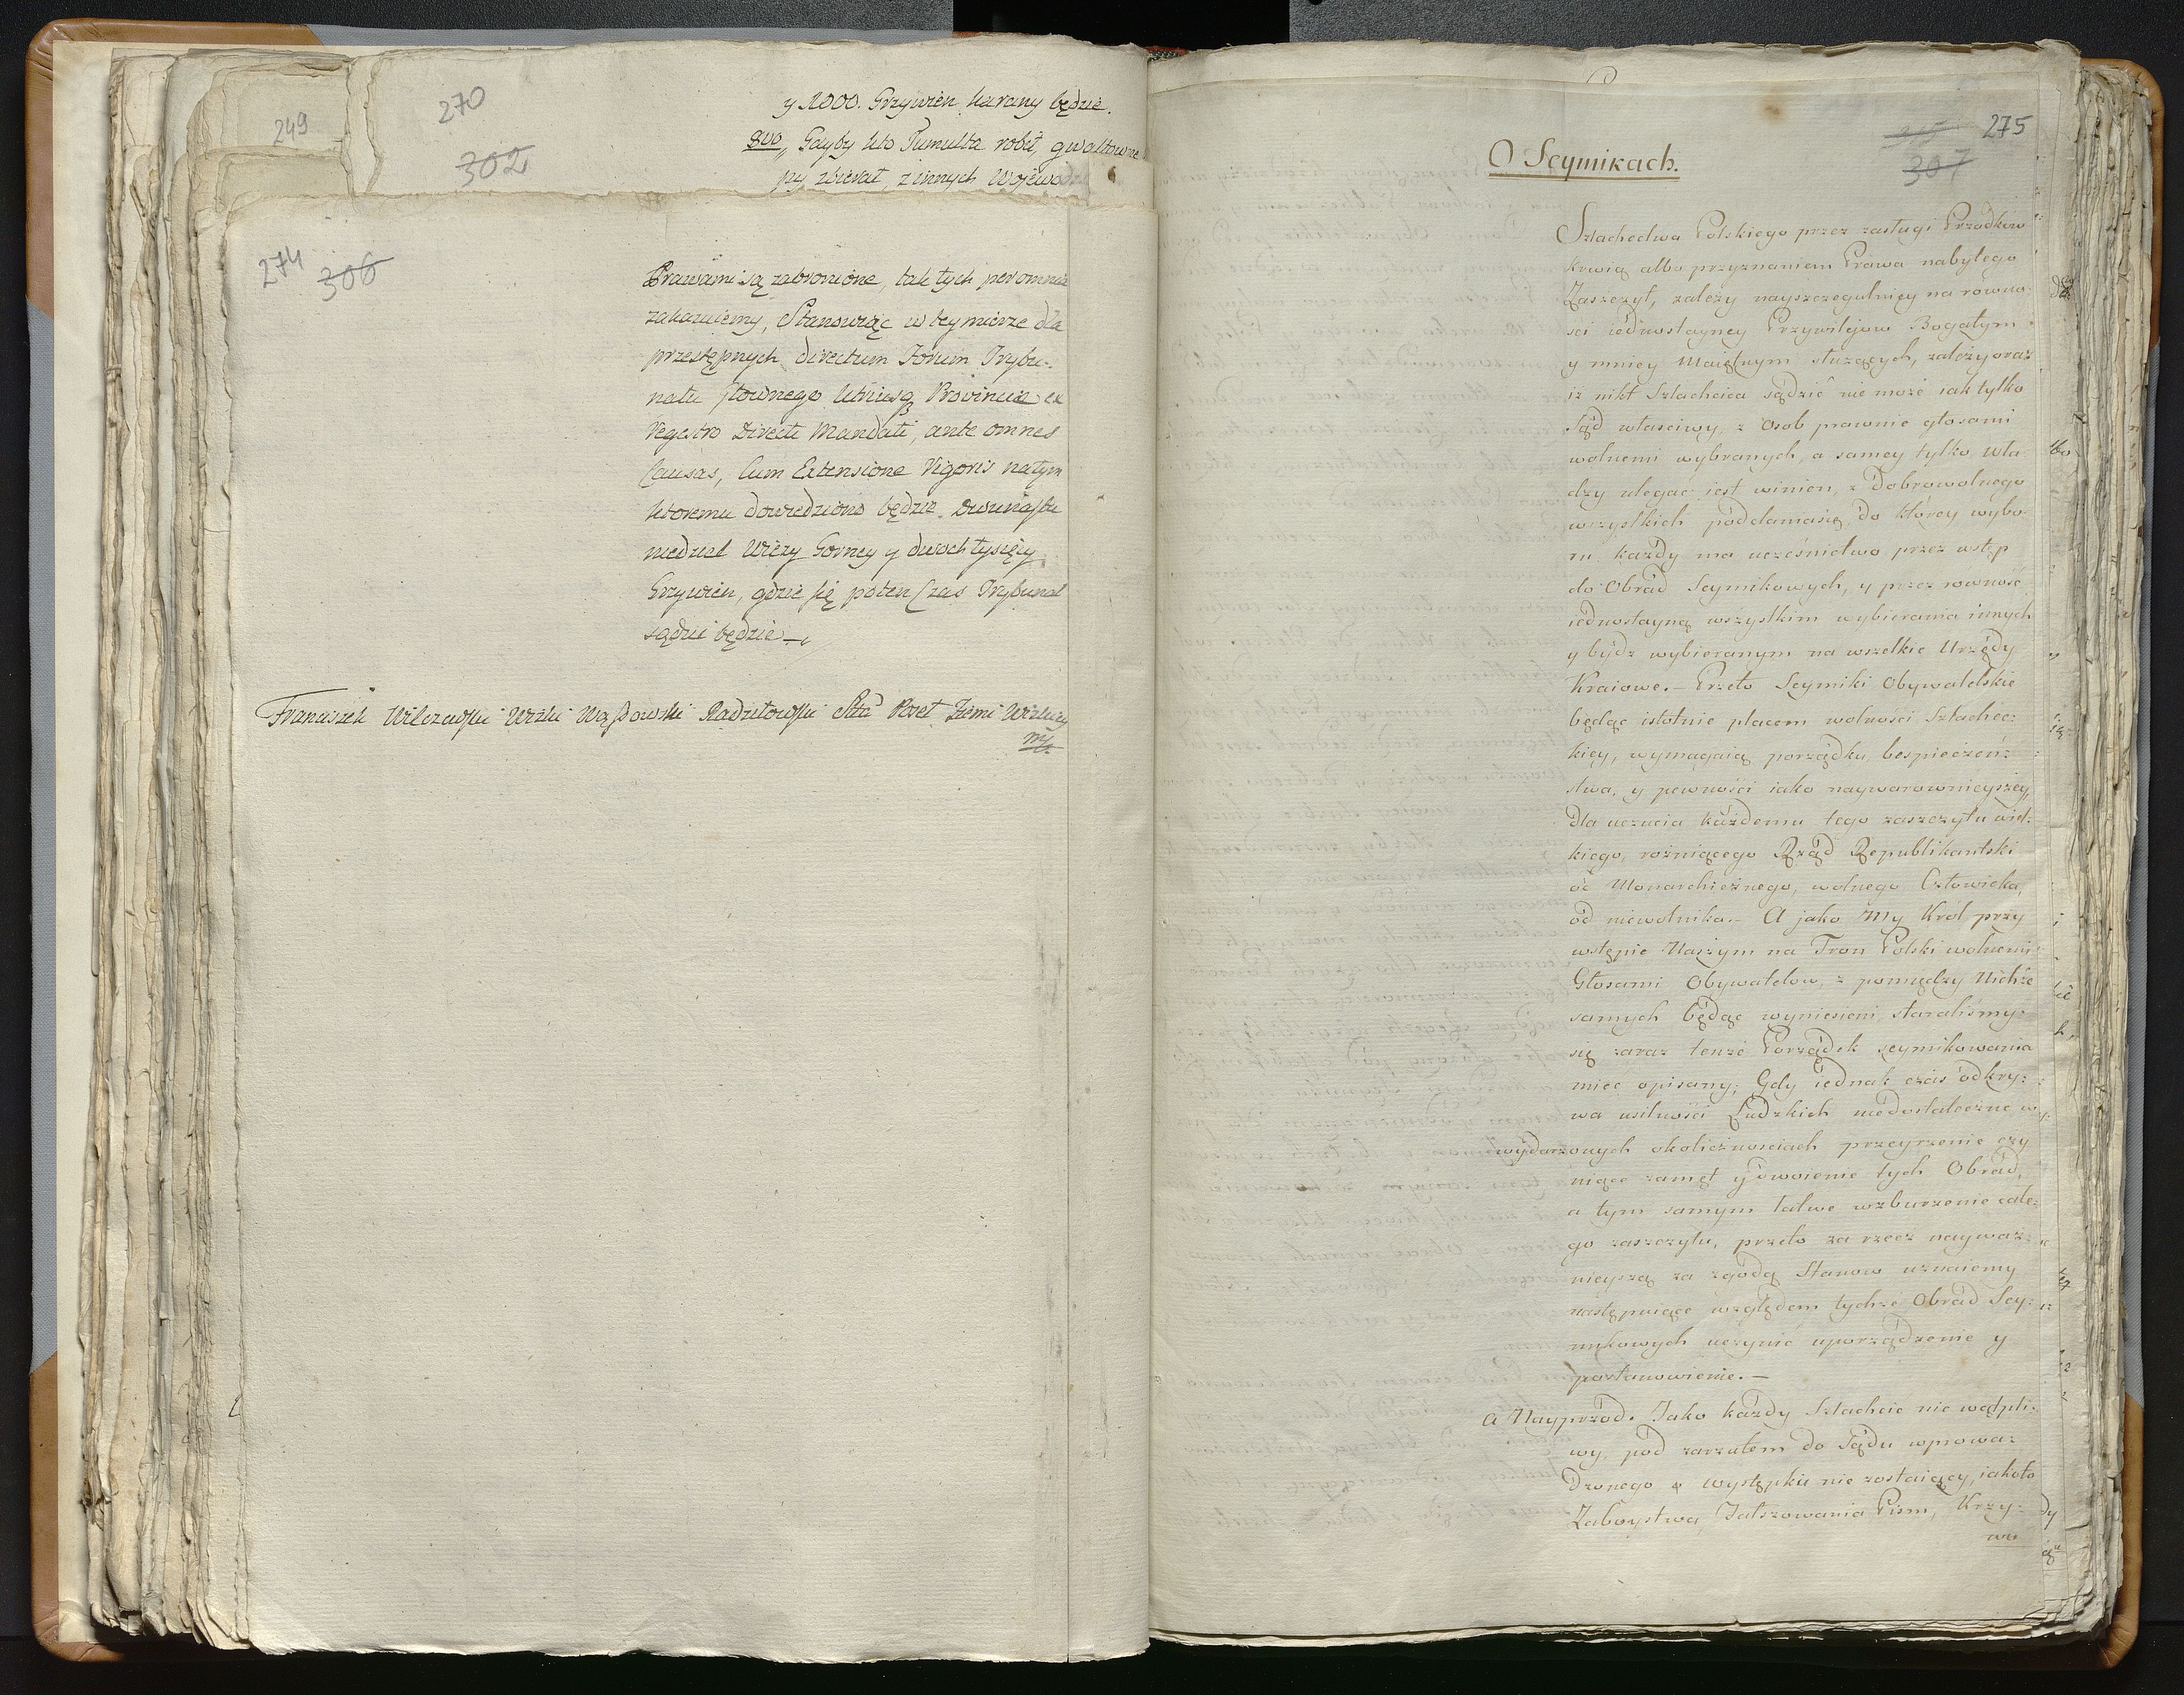 249
270
302
y 1000. Grzywien karany będzie.
8vo,, Gdyby kto Tumulta robił, gwałtowne
py zbierał, z innych Wojewodz
274 306
Prawami są zabronione, tak tych per omnia
zakazuiemy, Stanowiąc w tey mierze dla
przestępnych directum Forum Trybu-
nału Głownego Prowincie ex
Regestro Directi Mandati, ante omnes
Causas, Cum Extensione Vigoris na tym
ktoremu dowiedziono będzie dwunastu
niedziel Wieży Gorney y dwoch tysięcy
Grzywien, gdzie się poten Czas Trybunał
sądzić będzie
Franciszek Wilczewski Wizki Wąsowski Radziłowski Stta Poseł Ziemi Wizkiey
mp
275
307
O Seymikach.
Szlachectwa Polskiego przez zasługi Przodkow
krwią albo przyznaniem Prawa nabytego
Zaszczyt, zależy nayszczegulniey na rowno-
sci iednostayney Przywilejow Bogatym
y mniey Maiętnym służących, zależy oraz
iż nikt Szlachcica sądzić nie może iak tylko
Sąd własciwy, z Osob prawnie głosami
wolnemi wybranych, a samey tylko Wła-
dzy ulegac iest winien, z dobrowolnego
wszystkich poddania się, do ktorey wybo-
ru każdy ma uczesnictwo przez wstęp
do Obrad Seymikowych, y przez rowność
iednostayną wszystkim wybierania innych
y bydz wybieranym na wszelkie Urzędy
Kraiowe. - Przeto Seymiki Obywatelskie
będąc istotnie placem wolności Szlachec:
kiey, wymagaią porządku bespieczeń:
stwa, y pewności iako naywarownieyszey,
dla uczucia każdemu tego zaszczytu wiel:
kiego, rożniącego Rząd Republikantski
od Monarchicznego, wolnego Człowieka,
od niewolnika. - A jako My Krol przy
wstępie Naszym na Tron Polski wolnemi
Głosami Obywatelow, z pomiędzy Nichże
samych będąc wyniesieni, staralismy
się zaraz tenże Porządek seymikowania
miec opisany; Gdy iednak czas odkry:
wa usilności Ludzkich niedostateczne w
wydarzonych okolicznosciach przeyrzenie czy
niące zamęt y dwoienie tych Obrad,
a tym samym łatwe wzburzenie całe:
go zaszczytu, przeto za rzecz nayważ:
nieyszą za zgodą Stanow uznaiemy
następuiące względem tychże Obrad Sey:
mikowych uczynić uporządzenie y
postanowienie. -
A Nayprzod. Jako każdy Szlachcic nie wątpli:
wy, pod zarzutem do Sądu wprowa:
dzonego o występku nie zostaiący, iakoto
Zaboystwa, Falszowania Pism, Krzy:
wo